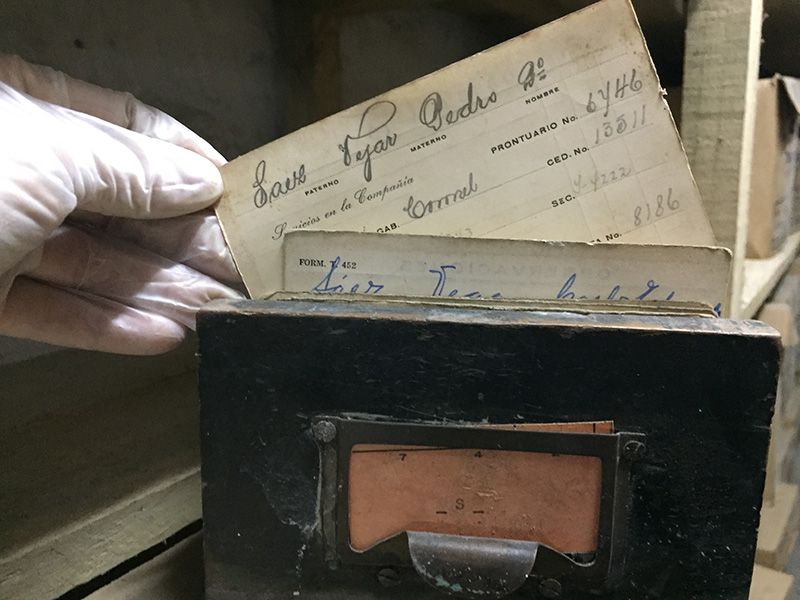 Saez Vejar Pedro 2º
PATERNO MATERNO NOMBRE
PRONTUARIO No. 6446
Servicios en la Compañía CED. No. 13511
GAB. Coronel SEC.
No. 8186
FORM. 452
Sáez Vega
7 4 2
– S –